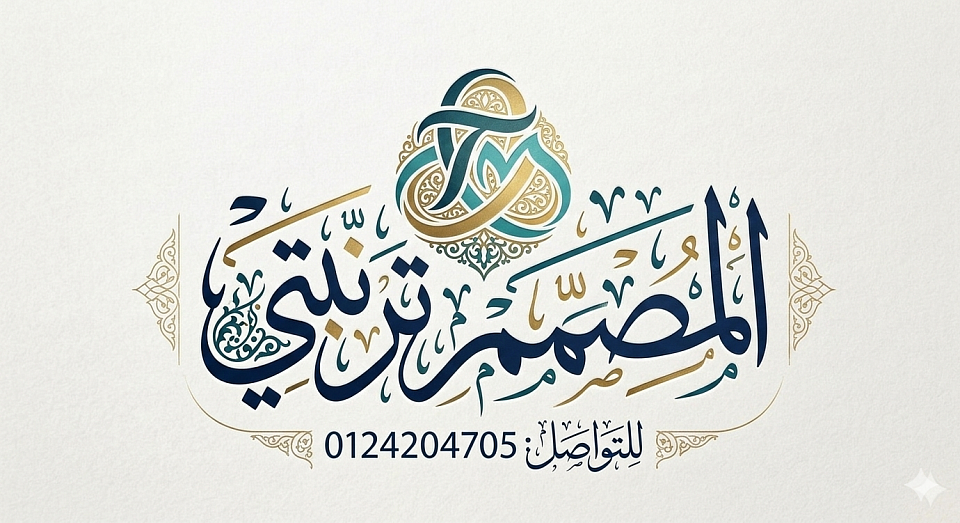 المصمم ترنبتي
للتواصل: 0124204705